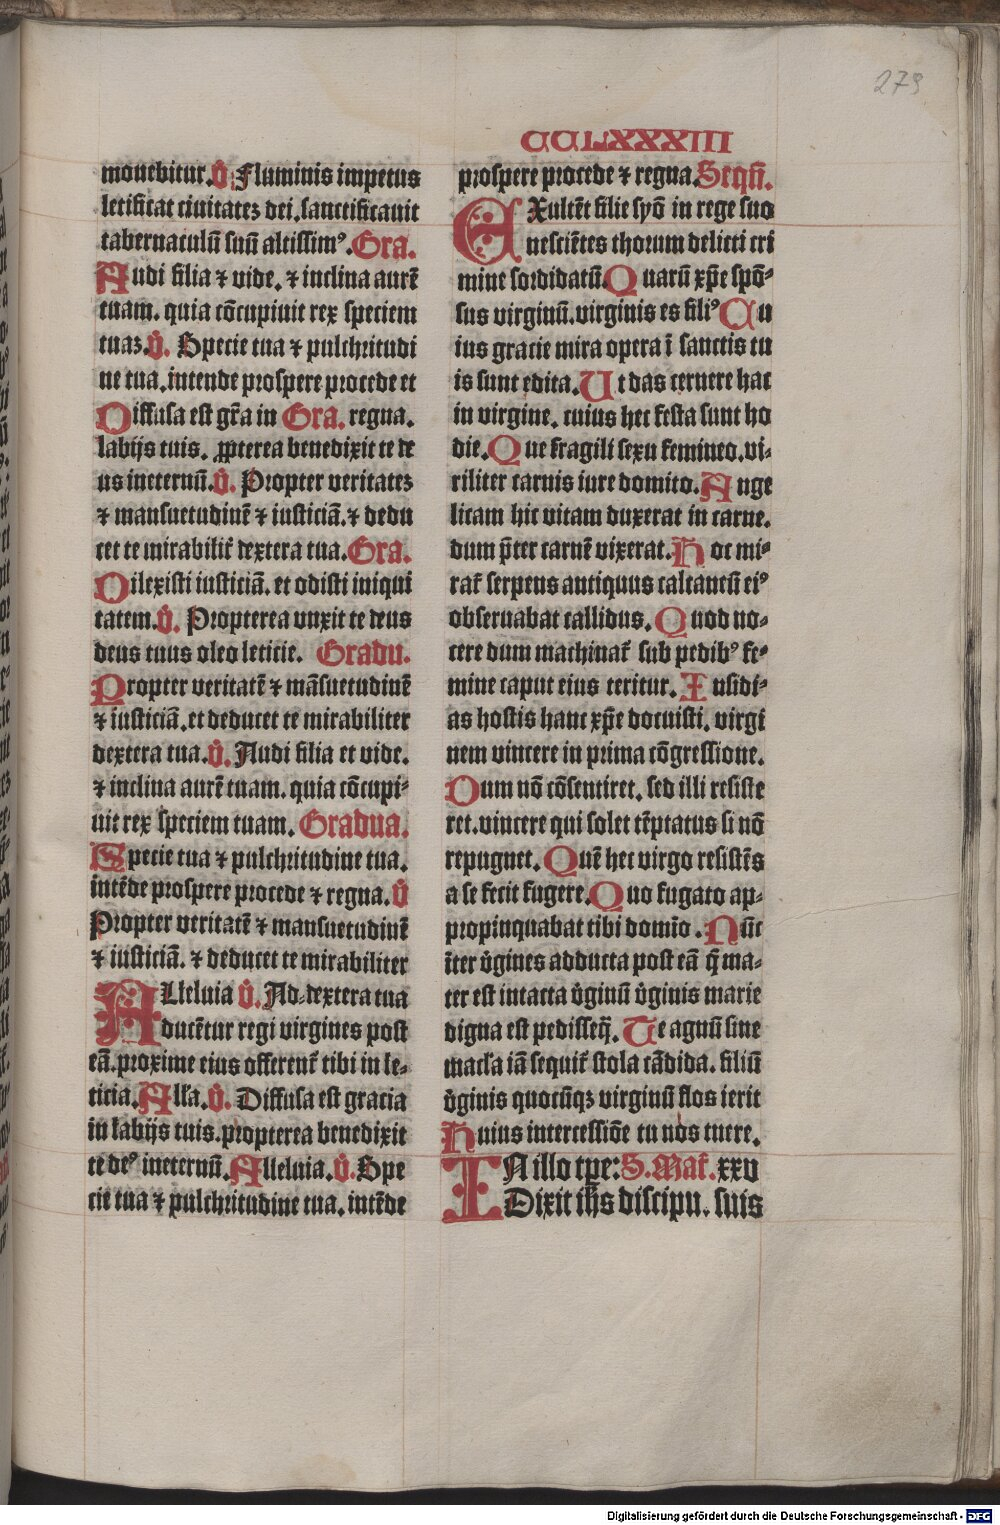 279
CCLXXXIII
mouebitur. V̊. Fluminis impetus
letificat ciuitatez dei. sanctificauit
tabernaculū suū altissimꝰ. Gra.
Audi filia ⁊ vide. ⁊ inclina aurē
tuam. quia cōcupiuit rex speciem
tuaz. V̊. Specie tua ⁊ pulchritudi
ne tua. intende prospere procede et
Diffusa est gr̄a in Gra. regna.
labijs tuis. ꝓpterea benedixit te de
us ineternū. V̊. Propter veritatez
⁊ mansuetudinē ⁊ iusticiā. ⁊ dedu
cet te mirabilit̄ dextera tua. Gra.
Dilexisti iusticiā. et odisti iniqui
tatem. V̊. Propterea vnxit te deus
deus tuus oleo leticie. Gradu.
Propter veritatē ⁊ māsuetudinē
⁊ iusticiā. et deducet te mirabiliter
dextera tua. V̊. Audi filia et vide.
⁊ inclina aurē tuam. quia cōcupi⸗
uit rex speciem tuam. Gradua.
Specie tua ⁊ pulchritudine tua.
intēde prospere procede ⁊ regna. V̊
Propter veritatē ⁊ mansuetudinē
⁊ iusticiā. ⁊ deducet te mirabiliter
Alleluia V̊. Ad⸗dextera tua
ducētur regi virgines post
eā. proxime eius offerent̄ tibi in le⸗
ticia. All'a. V̊. Diffusa est gracia
in labijs tuis. propterea benedixit
te deꝰ ineternū. Alleluia. V̊. Spe
cie tua ⁊ pulchritudine tua. intēde
prospere procede ⁊ regna. Seqn̄.
EXultēt filie syō in rege suo
nesciētes thorum delicti cri
mine sordidatū. Quarū xp̄e spō⸗
sus virginū. virginis es filiꝰ Cu
ius gracie mira opera ī sanctis tu
is sunt edita. Ut das cernere hac
in virgine. cuius hec festa sunt ho
die. Que fragili sexu femineo. vi⸗
riliter carnis iure domito. Ange
licam hic vitam duxerat in carne.
dum p̄ter carnē vixerat. Hoc mi⸗
rat̄ serpens antiquus calcaneū eiꝰ
obseruabat callidus. Quod no⸗
cere dum machinat̄ sub pedibꝰ fe⸗
mine caput eius teritur. Insidi⸗
as hostis hanc xp̄e docuisti. virgi
nem vincere in prima cōgressione.
Dum nō cōsentiret. sed illi resiste
ret. vincere qui solet tēptatus si nō
repugnet. Quē hec virgo resistēs
a se fecit fugere. Quo fugato ap⸗
propinquabat tibi domīo. Nūc
īter v̊gines adducta post eā q̄ ma⸗
ter est intacta v̊ginū v̊ginis marie
digna est pedisseq̄. Te agnū sine
macl'a iā sequit̄ stola cādida. filiū
v̊ginis quocūqꝫ virginū flos ierit
Huius intercessiōe tu nos tuere.
IN illo tp̄e: S. Mat̄. xxv
Dixit ih̄s discipu. suis
Digitalisierung gefördert durch die Deutsche Forschungsgemeinschaft - DFG